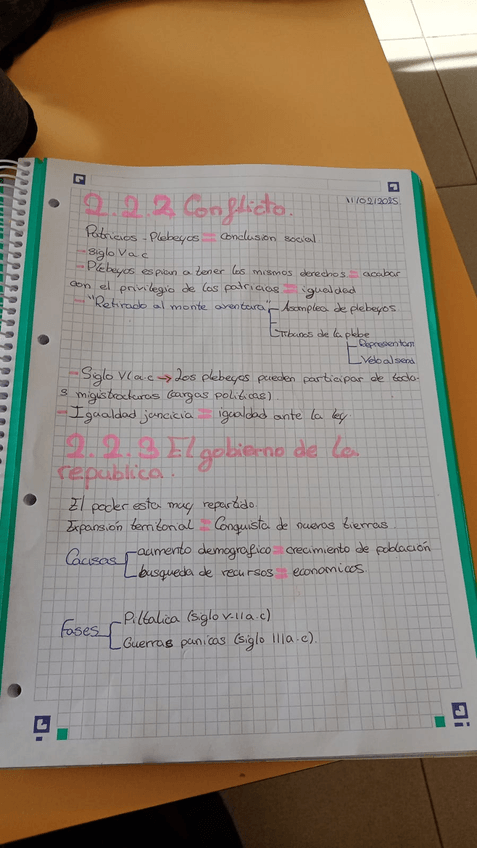 11/02/2025
2.2.2 Conflicto.
Patricios - Plebeyos = conclusion social
- Siglo V a.c
- Plebeyos espian a tener los mismos derechos = acabar
con el privilegio de los patricias = igualdad
- "Retirado al monte aventura" Asamplea de plebeyos
Tribunos de la plebe
Representan
Veto al send
- Siglo VI a.c → Los plebeyos pueden participar de toda
s migistraduras (cargas politicas)
- Igualdad juricicia = igualdad ante la ley
2.2.3 El gobierno de la
republica.
El poder esta muy repartido.
Expansión territorial = Conquista de nuevas tierras
Causas aumento demografico = crecimiento de población
busqueda de recursos = economicos
Fases Pilitalica (siglo V-II a.c)
Guerras punicas (siglo III a.c).